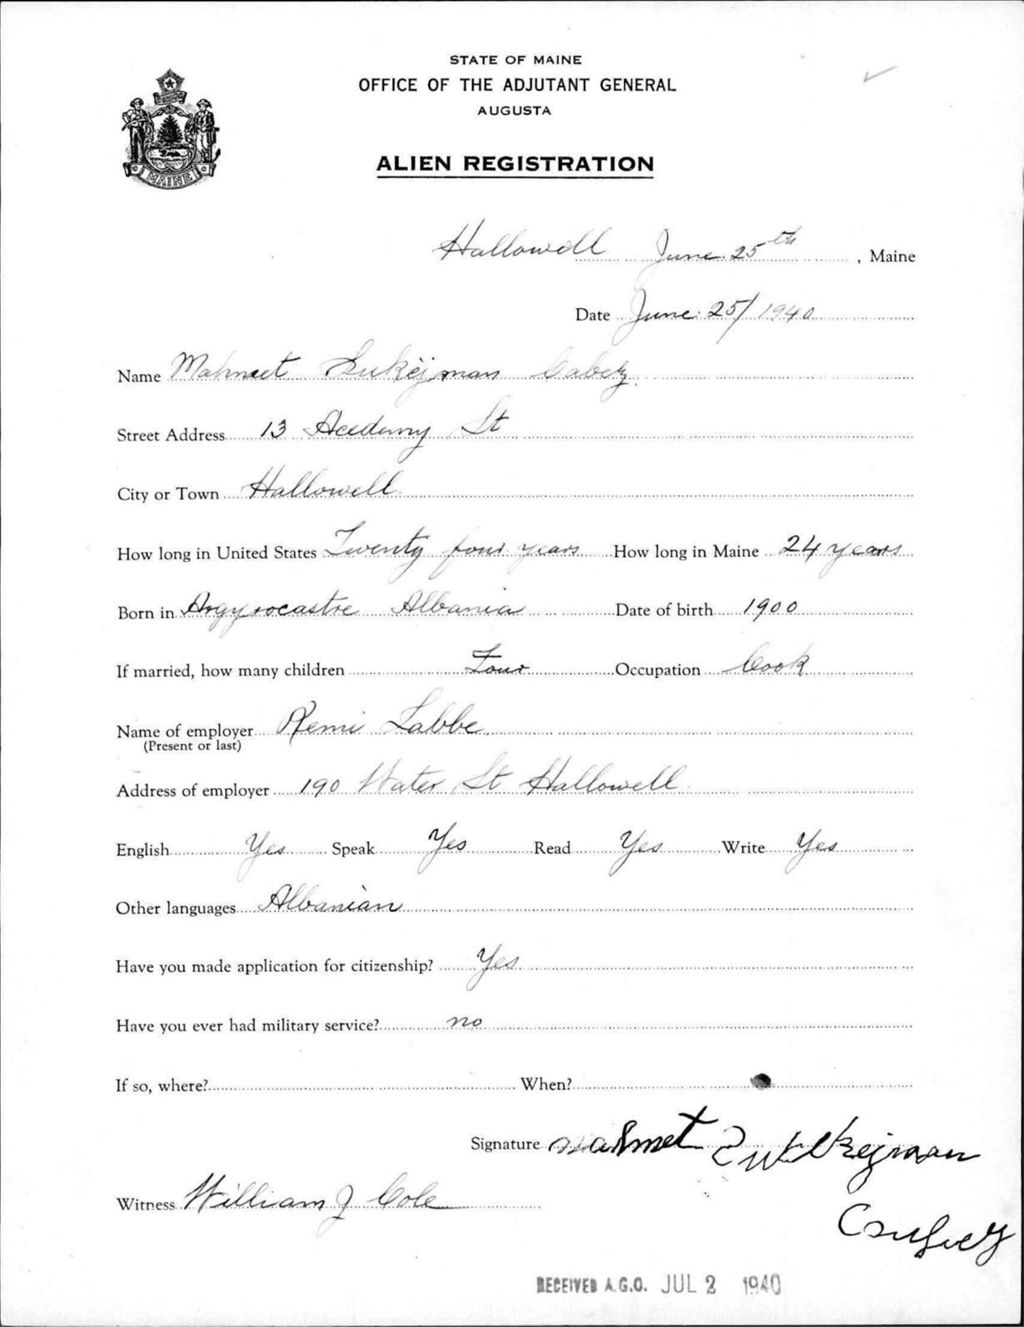 STATE OF MAINE
OFFICE OF THE ADJUTANT GENERAL
AUGUSTA
MAINE
ALIEN REGISTRATION
Hallowell June 25th, Maine
Date June 25/1940
Name Mahmeet Zukejman Cabez
Street Address 13 Acedemy St
City or Town Hallowell
How long in United States Twenty four years How long in Maine 24 years
Born in Argyrocastre Albania Date of birth 1900
If married, how many children Four Occupation Cook
Name of employer Remi Labbe
(Present or last)
Address of employer 190 Water St Hallowell
English Yes Speak Yes Read Yes Write Yes
Other languages Albanian
Have you made application for citizenship? Yes
Have you ever had military service? no
If so, where? When?
Signature Mahmet
Witness William J Cole
RECEIVED A.G.O. JUL 2 1940